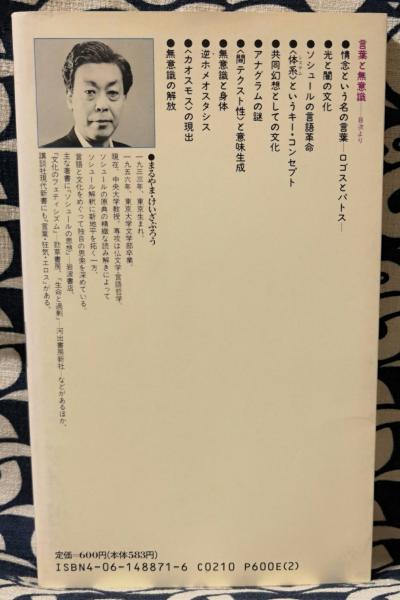 言葉と無意識——目次より
●情念という名の言葉——ロゴスとパトス——
●光と闇の文化
●ソシュールの言語革命
●〈体系〉というキー・コンセプト
システム
●共同幻想としての文化
●アナグラムの謎
●〈間テクスト性〉と意味生成
●無意識と身体
●逆ホメオスタシス
●〈カオスモス〉の現出
●無意識の解放
●まるやま・けいざぶろう
一九三三年、東京生まれ。
一九五六年、東京大学文学部卒業。
現在、中央大学教授。専攻は仏文学・言語哲学。
ソシュールの原典の精緻な読み解きによって
ソシュール解釈に新地平を拓く一方、
言語と文化をめぐって独自の思索を深めている。
主な著書に、『ソシュールの思想』—岩波書店、
『文化のフェティシズム』—勁草書房、『生命と過剰』—河出書房新社—などがあるほか、
講談社現代新書にも『言葉・狂気・エロス』がある。
定価=600円(本体583円)
ISBN4-06-148871-6 C0210 P600E(2)